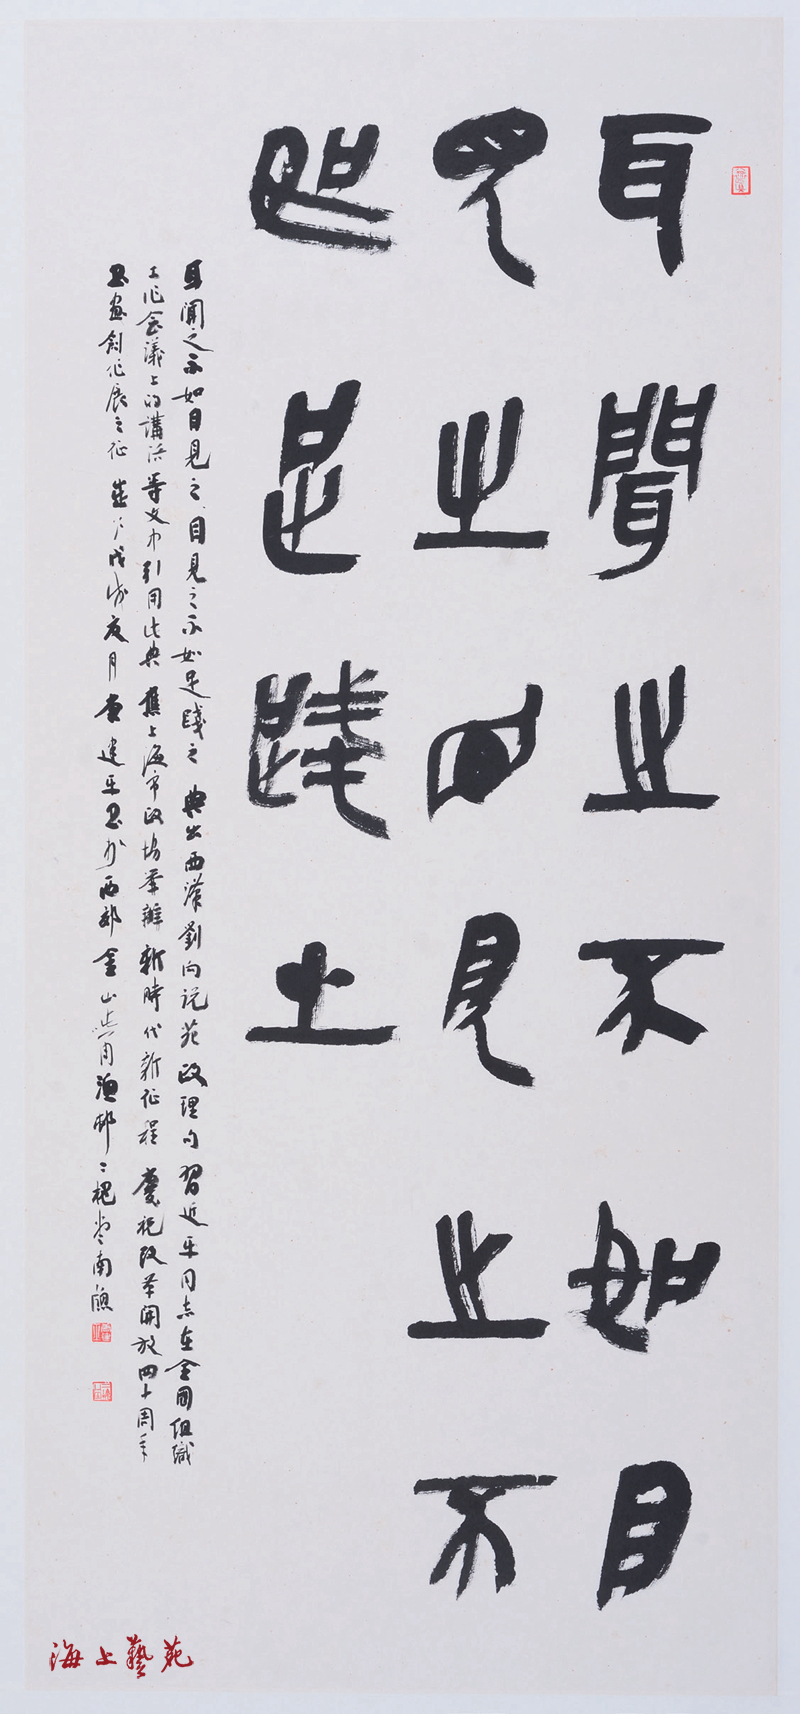 耳聞之不如目
見之目見之不
如足踐之
耳聞之不如目見之目見之不如足踐之典出西漢劉向說苑政理句習近平同志在全國組織
工作會議上的講話等文中引用此典應上海市政協舉辦新時代新征程慶祝改革開放四十周年
書畫創作展之征戊戌夏月建平書於西郊金山漁邨堂南牕
海上藝苑